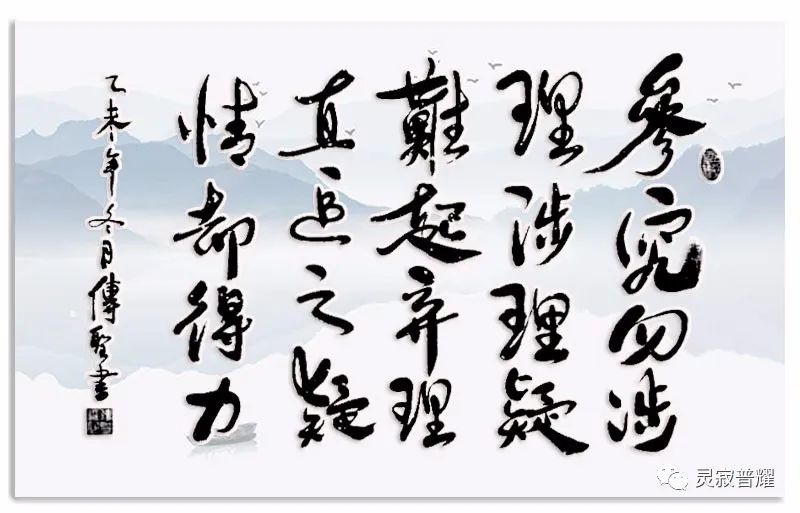 參究勿涉
理涉理疑
難起弃理
直追之疑
情却得力
乙未年冬月傳聖書
灵寂普耀